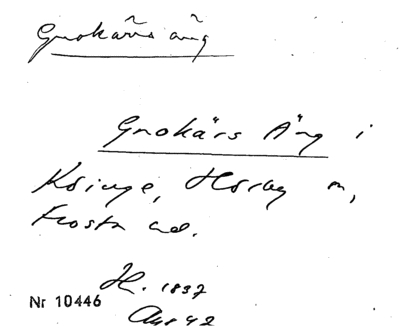 Gnokärs äng
Gnokärs Äng i
Ksinge, Hörby m,
Frosta hd.
H. 1837
Nr 10446
42